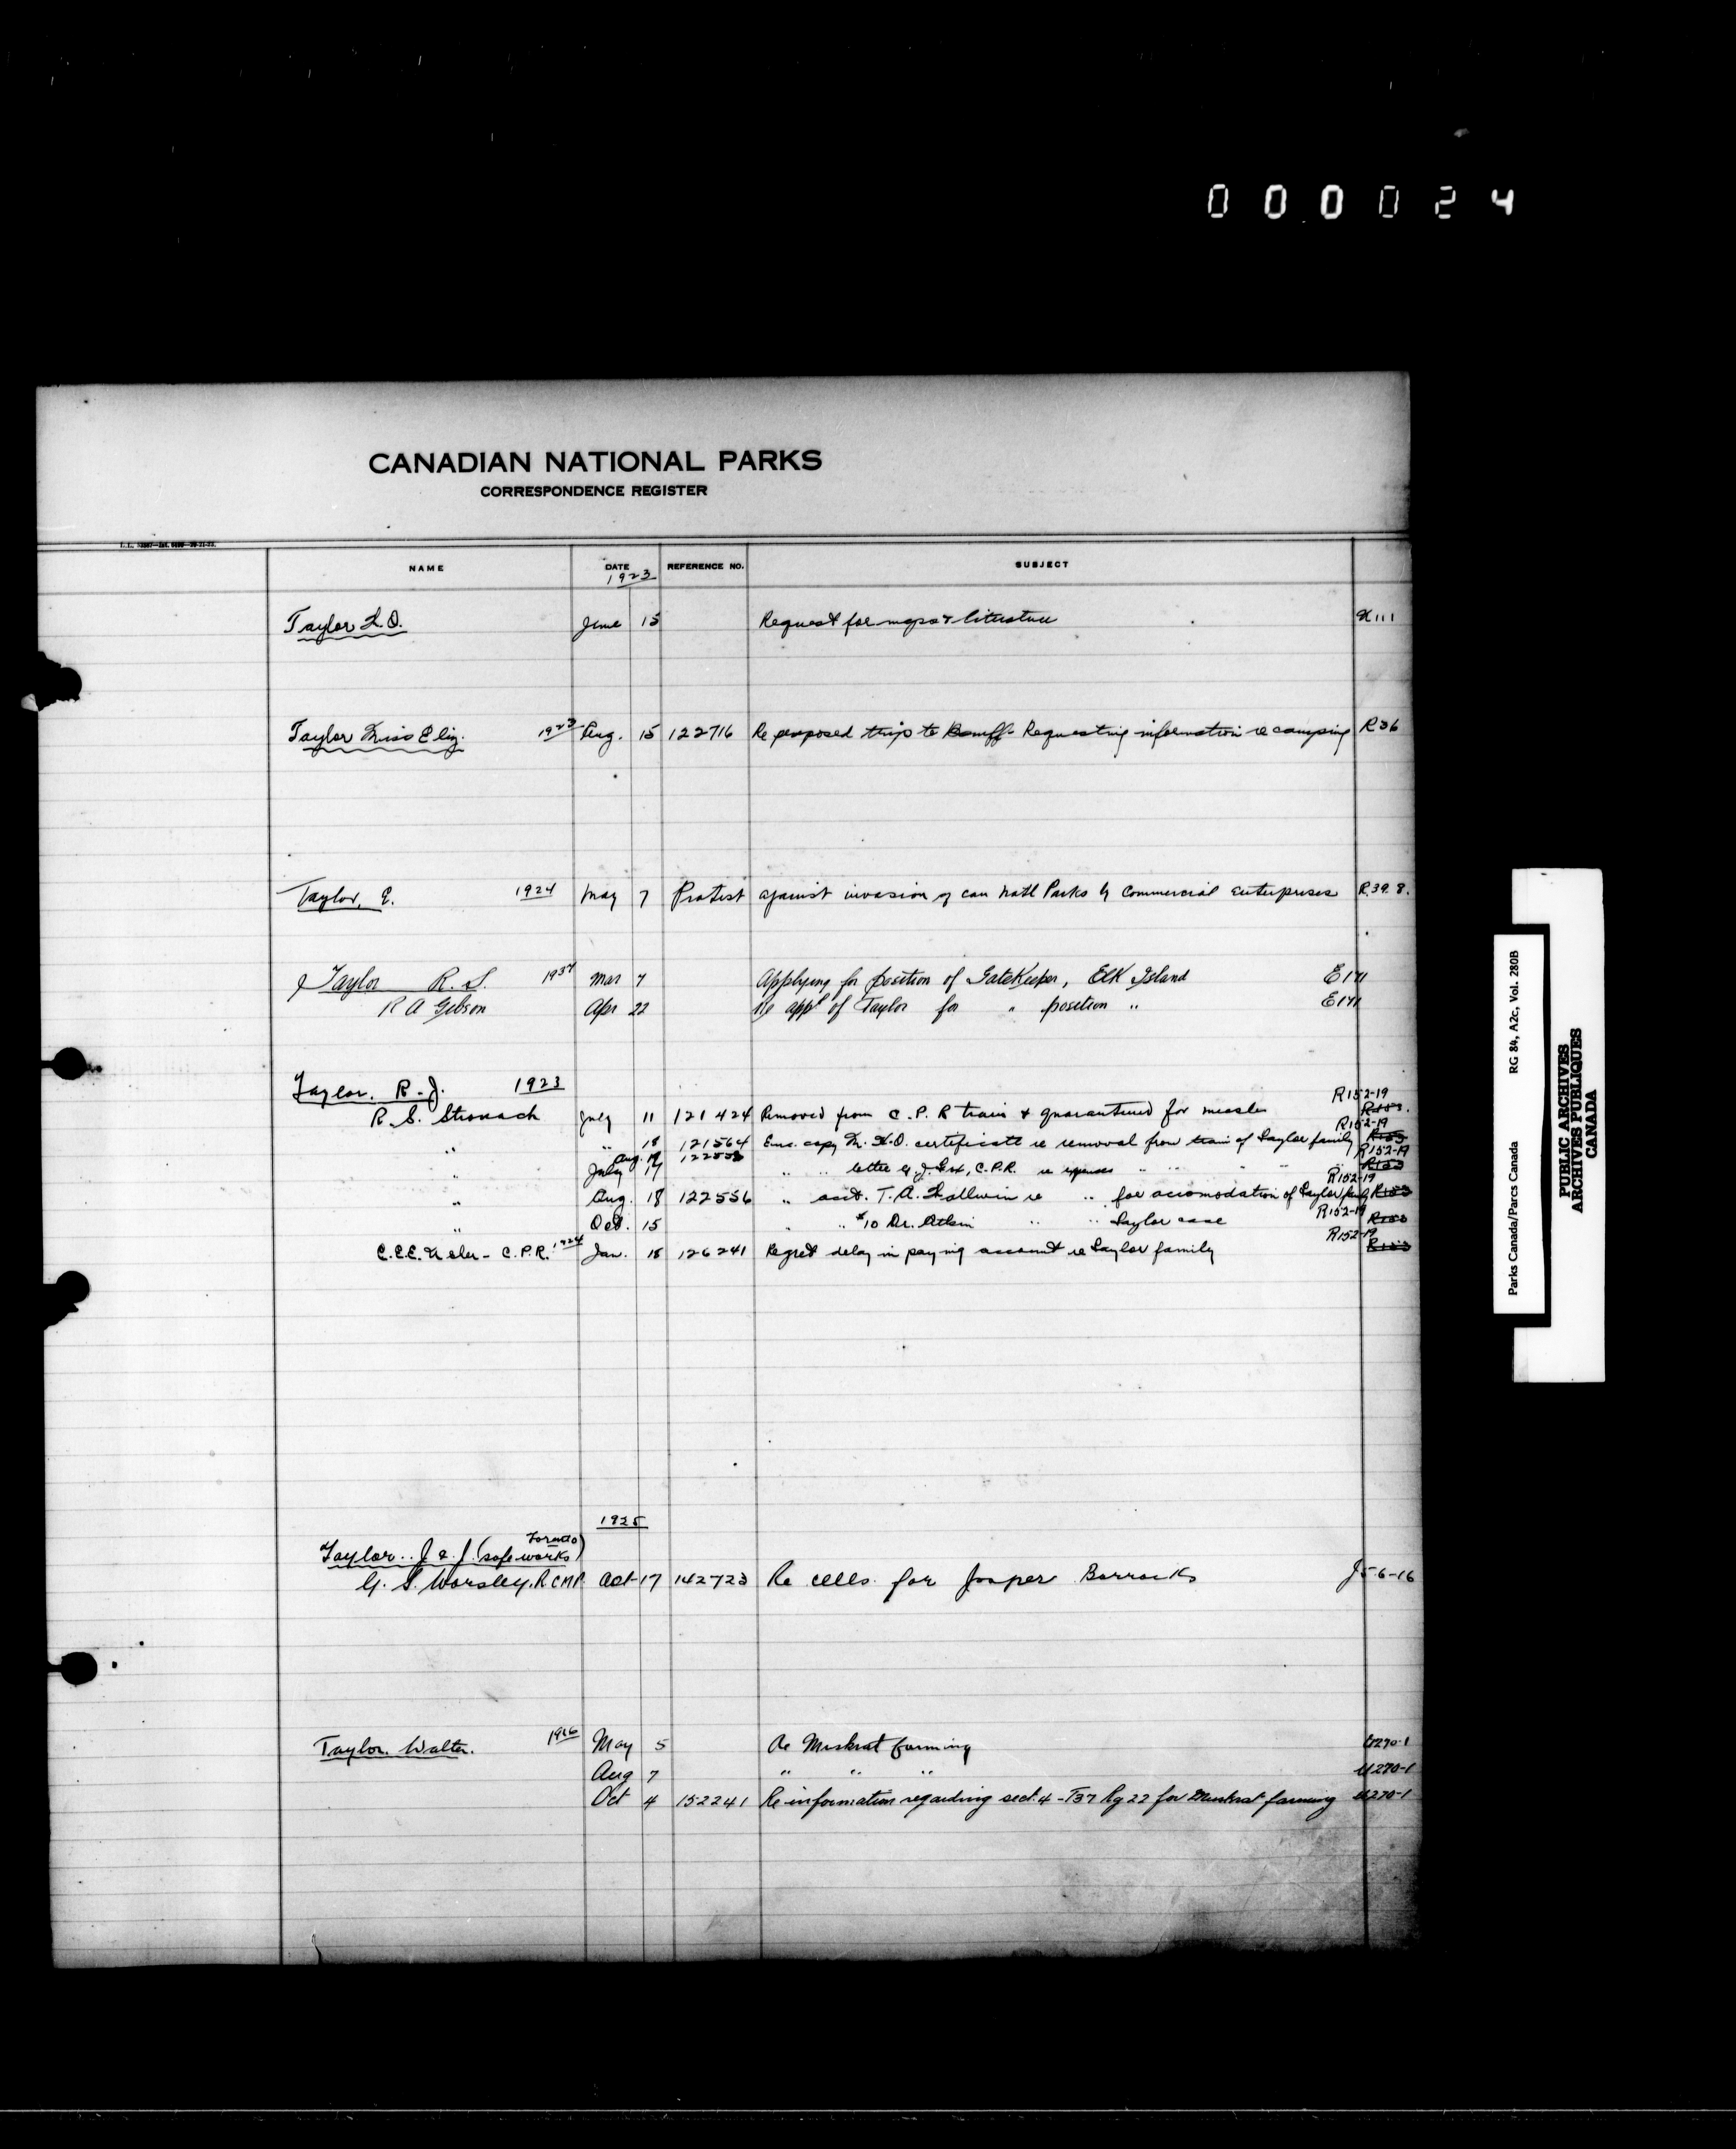 000024
CANADIAN NATIONAL PARKS
CORRESPONDENCE REGISTER
NAME DATE REFERENCE NO. SUBJECT
1923
Taylor L.O. June 15 Request for maps & literature 111
Taylor Miss Eliz. 1923 Aug. 15 122716 Re proposed trip to Banff - Requesting information re camping R36
Taylor, E. 1924 May 7 Protest against invasion of Can Natl Parks by Commercial Enterprises R.39.8.
Taylor R. S. 1937 Mar 7 Applying for position of GateKeeper, Elk Island E171
R A Gibson Apr 22 Re appl of Taylor for " position " E171
Taylor. R. J. 1923
R152-19
R. S. Stronach July 11 121424 Removed from C.P.R train & quarantined for measles R153.
R152-19
" " 18 121564 Enc. copy M.H.O. certificate re removal from train of Taylor family R153
Aug. R152-19
" July 17 " " letter G. J. C.P.R. re expenses " " " " R153
R152-19
" Aug. 18 122556 " acct. T. A. re " for accomodation of Taylor family R153
R152-19
" Oct. 15 " " $10 Dr. Atkin " " Taylor case R153
R152-19
C.C.E. - C.P.R. 1924 Jan. 18 126241 Regret delay in paying account re Taylor family R153
1925
Toronto
Taylor.. J & J. (safe works)
G. S. Worsley. RCMP Oct 17 142723 Re cells for Jasper Barracks J56-16
Taylor. Walter. 1926 May 5 Re Muskrat farming U270-1
Aug 7 " " " U270-1
Oct 4 152241 Re information regarding sect. 4 - T37 Rg 22 for Muskrat farming U270-1
Parks Canada/Parcs Canada RG 84, A2c, Vol. 280B
PUBLIC ARCHIVES
ARCHIVES PUBLIQUES
CANADA